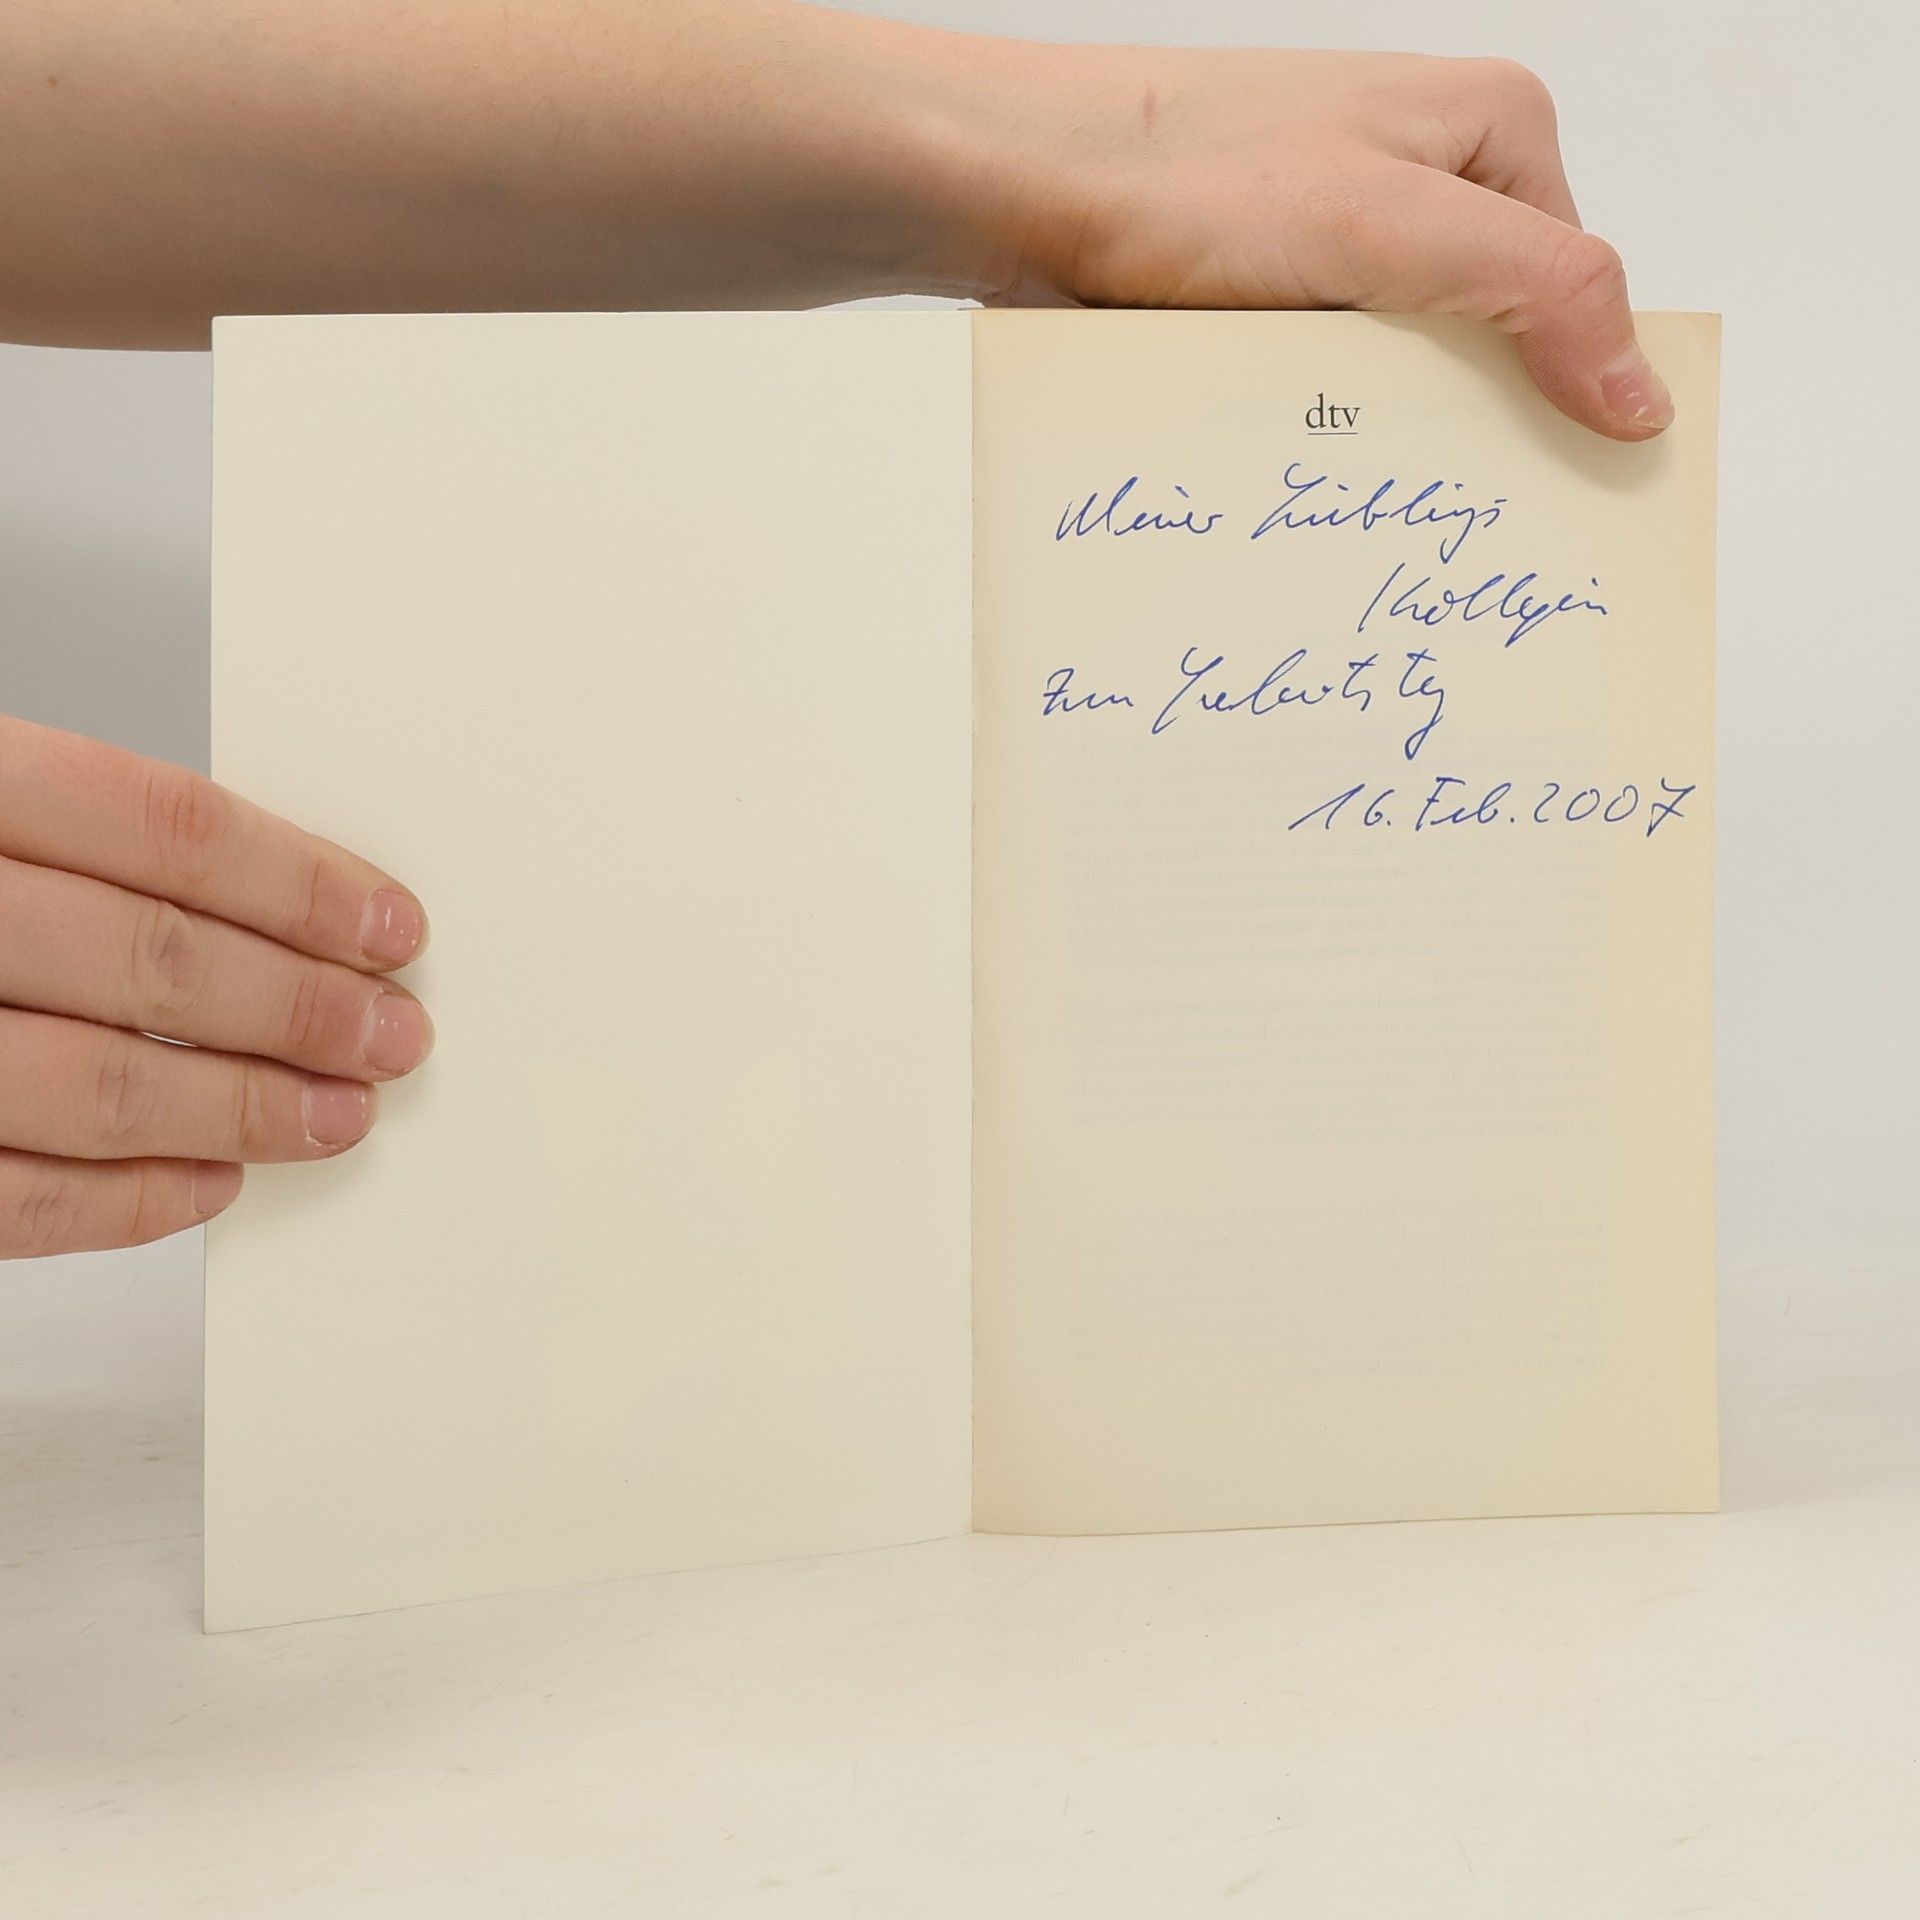 dtv
Meiner Lieblings
Kollegin
zum Geburtstag
16. Feb. 2007